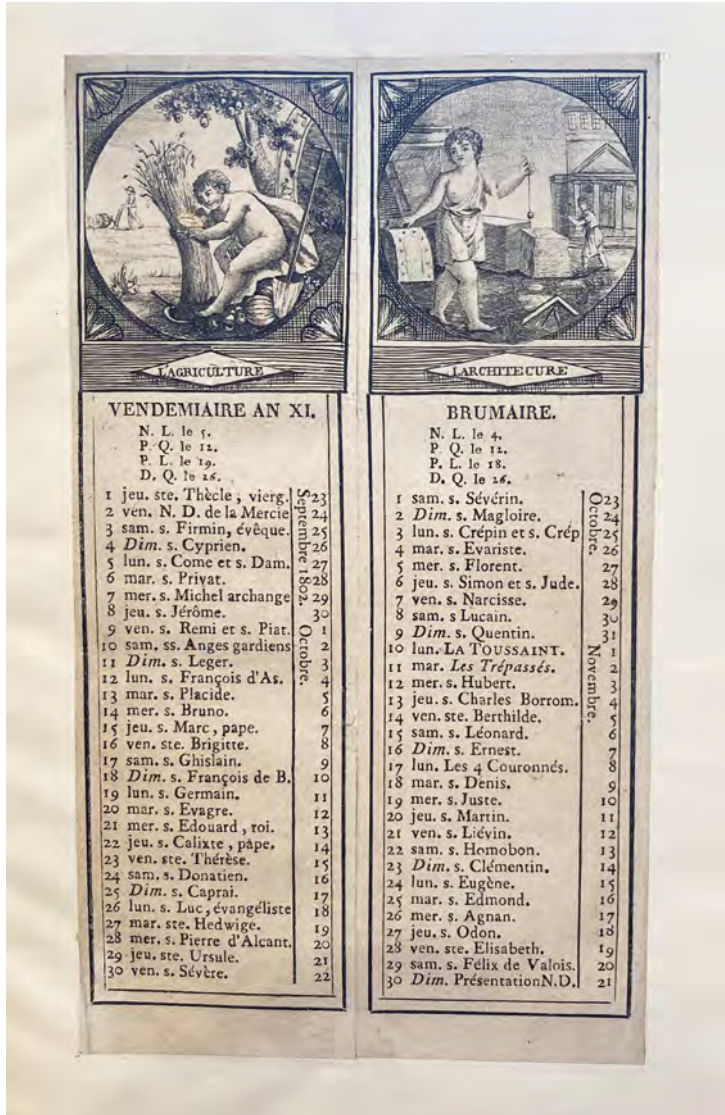 L'AGRICULTURE
VENDEMIAIRE AN XI.
N. L. le 5.
P. Q. le 12.
P. L. le 19.
D. Q. le 26.
Septembre 1802. Octobre.
1 jeu. ste. Thècle, vierg. 23
2 ven. N. D. de la Mercie 24
3 sam. s. Firmin, évêque. 25
4 Dim. s. Cyprien. 26
5 lun. s. Come et s. Dam. 27
6 mar. s. Privat. 28
7 mer. s. Michel archange 29
8 jeu. s. Jérôme. 30
9 ven. s. Remi et s. Piat. 1
10 sam. ss. Anges gardiens 2
11 Dim. s. Leger. 3
12 lun. s. François d'As. 4
13 mar. s. Placide. 5
14 mer. s. Bruno. 6
15 jeu. s. Marc, pape. 7
16 ven. ste. Brigitte. 8
17 sam. s. Ghislain. 9
18 Dim. s. François de B. 10
19 lun. s. Germain. 11
20 mar. s. Evagre. 12
21 mer. s. Edouard, roi. 13
22 jeu. s. Calixte, pape. 14
23 ven. ste. Thérèse. 15
24 sam. s. Donatien. 16
25 Dim. s. Caprai. 17
26 lun. s. Luc, évangéliste 18
27 mar. ste. Hedwige. 19
28 mer. s. Pierre d'Alcant. 20
29 jeu. ste. Ursule. 21
30 ven. s. Sévère. 22
L'ARCHITECURE
BRUMAIRE.
N. L. le 4.
P. Q. le 12.
P. L. le 18.
D. Q. le 26.
Octobre. Novembre.
1 sam. s. Sévérin. 23
2 Dim. s. Magloire. 24
3 lun. s. Crépin et s. Crép 25
4 mar. s. Evariste. 26
5 mer. s. Florent. 27
6 jeu. s. Simon et s. Jude. 28
7 ven. s. Narcisse. 29
8 sam. s Lucain. 30
9 Dim. s. Quentin. 31
10 lun. LA TOUSSAINT. 1
11 mar. Les Trépassés. 2
12 mer. s. Hubert. 3
13 jeu. s. Charles Borrom. 4
14 ven. ste. Berthilde. 5
15 sam. s. Léonard. 6
16 Dim. s. Ernest. 7
17 lun. Les 4 Couronnés. 8
18 mar. s. Denis. 9
19 mer. s. Juste. 10
20 jeu. s. Martin. 11
21 ven. s. Liévin. 12
22 sam. s. Homobon. 13
23 Dim. s. Clémentin. 14
24 lun. s. Eugène. 15
25 mar. s. Edmond. 16
26 mer. s. Agnan. 17
27 jeu. s. Odon. 18
28 ven. ste. Elisabeth. 19
29 sam. s. Félix de Valois. 20
30 Dim. Présentation N.D. 21